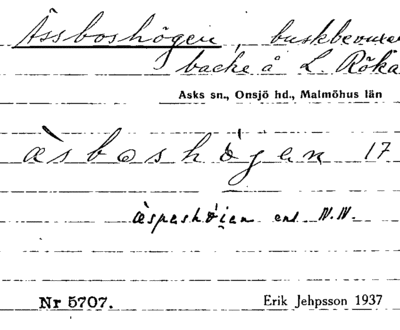 Ässboshögen, buskbevuxen
backe å L. Röka
Asks sn., Onsjö hd., Malmöhus län
àsboshögen 17
àspeshöien enl. N.N.
Nr 5707. Erik Jehpsson 1937